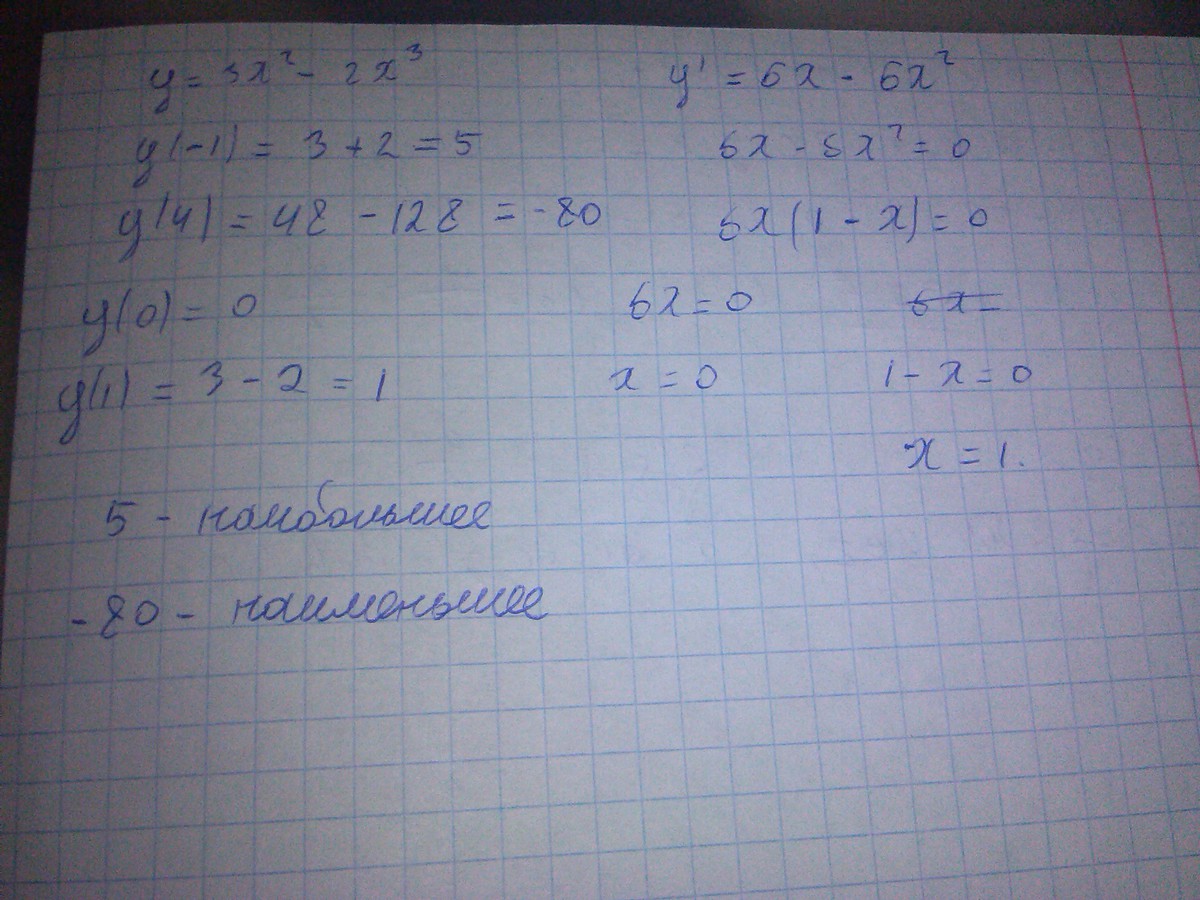 y = 3x² - 2x³
y' = 6x - 6x²
y(-1) = 3 + 2 = 5
6x - 6x² = 0
y(4) = 48 - 128 = -80
6x(1 - x) = 0
y(0) = 0
6x = 0
6x =
y(1) = 3 - 2 = 1
x = 0
1 - x = 0
x = 1.
5 - наибольшее
-80 - наименьшее